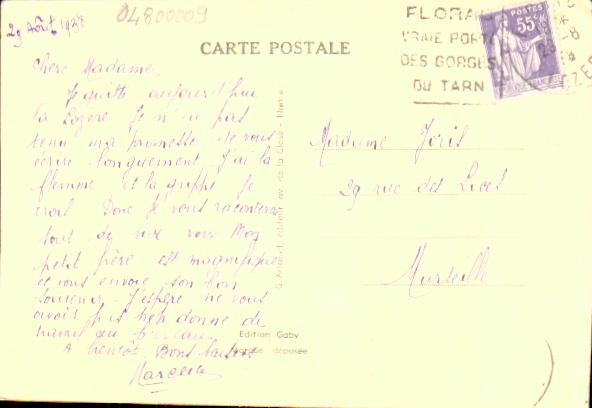 29 Août 1938
04800009
FLORAC
VRAIE PORTE
DES GORGES
DU TARN
POSTES
55c
CARTE POSTALE
Chère Madame,
Je quitte aujourd'hui
la Lozère Je n'ai pas
tenu ma promesse de vous
écrire longuement J'ai la
flemme et la grippe Je
crois Donc Je vous raconterai
tout de vive voix Mon
petit frère est magnifique
et vous envoie son bon
souvenir. J'espère ne vous
avoir pas trop donné de
travail au bureau.
A bientôt. Bons baisers
Marcelle
G. Artaud, éditeur, av. de la Close - Nantes
Edition Gaby
marque déposée
Madame Joris
29 rue des Lices
Marseille